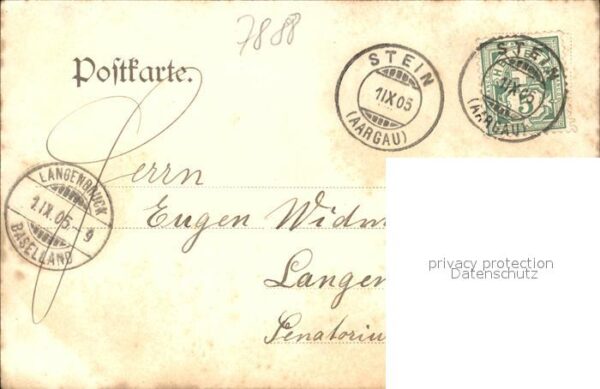 7888
Postkarte.
STEIN
1 IX 05
(AARGAU)
STEIN
1 IX 05
(AARGAU)
5
LANGENBRUCK
1.IX.05.-9
BASELLAND
Herrn
Eugen Widm
Langen
Senatoriu
privacy protection
Datenschutz